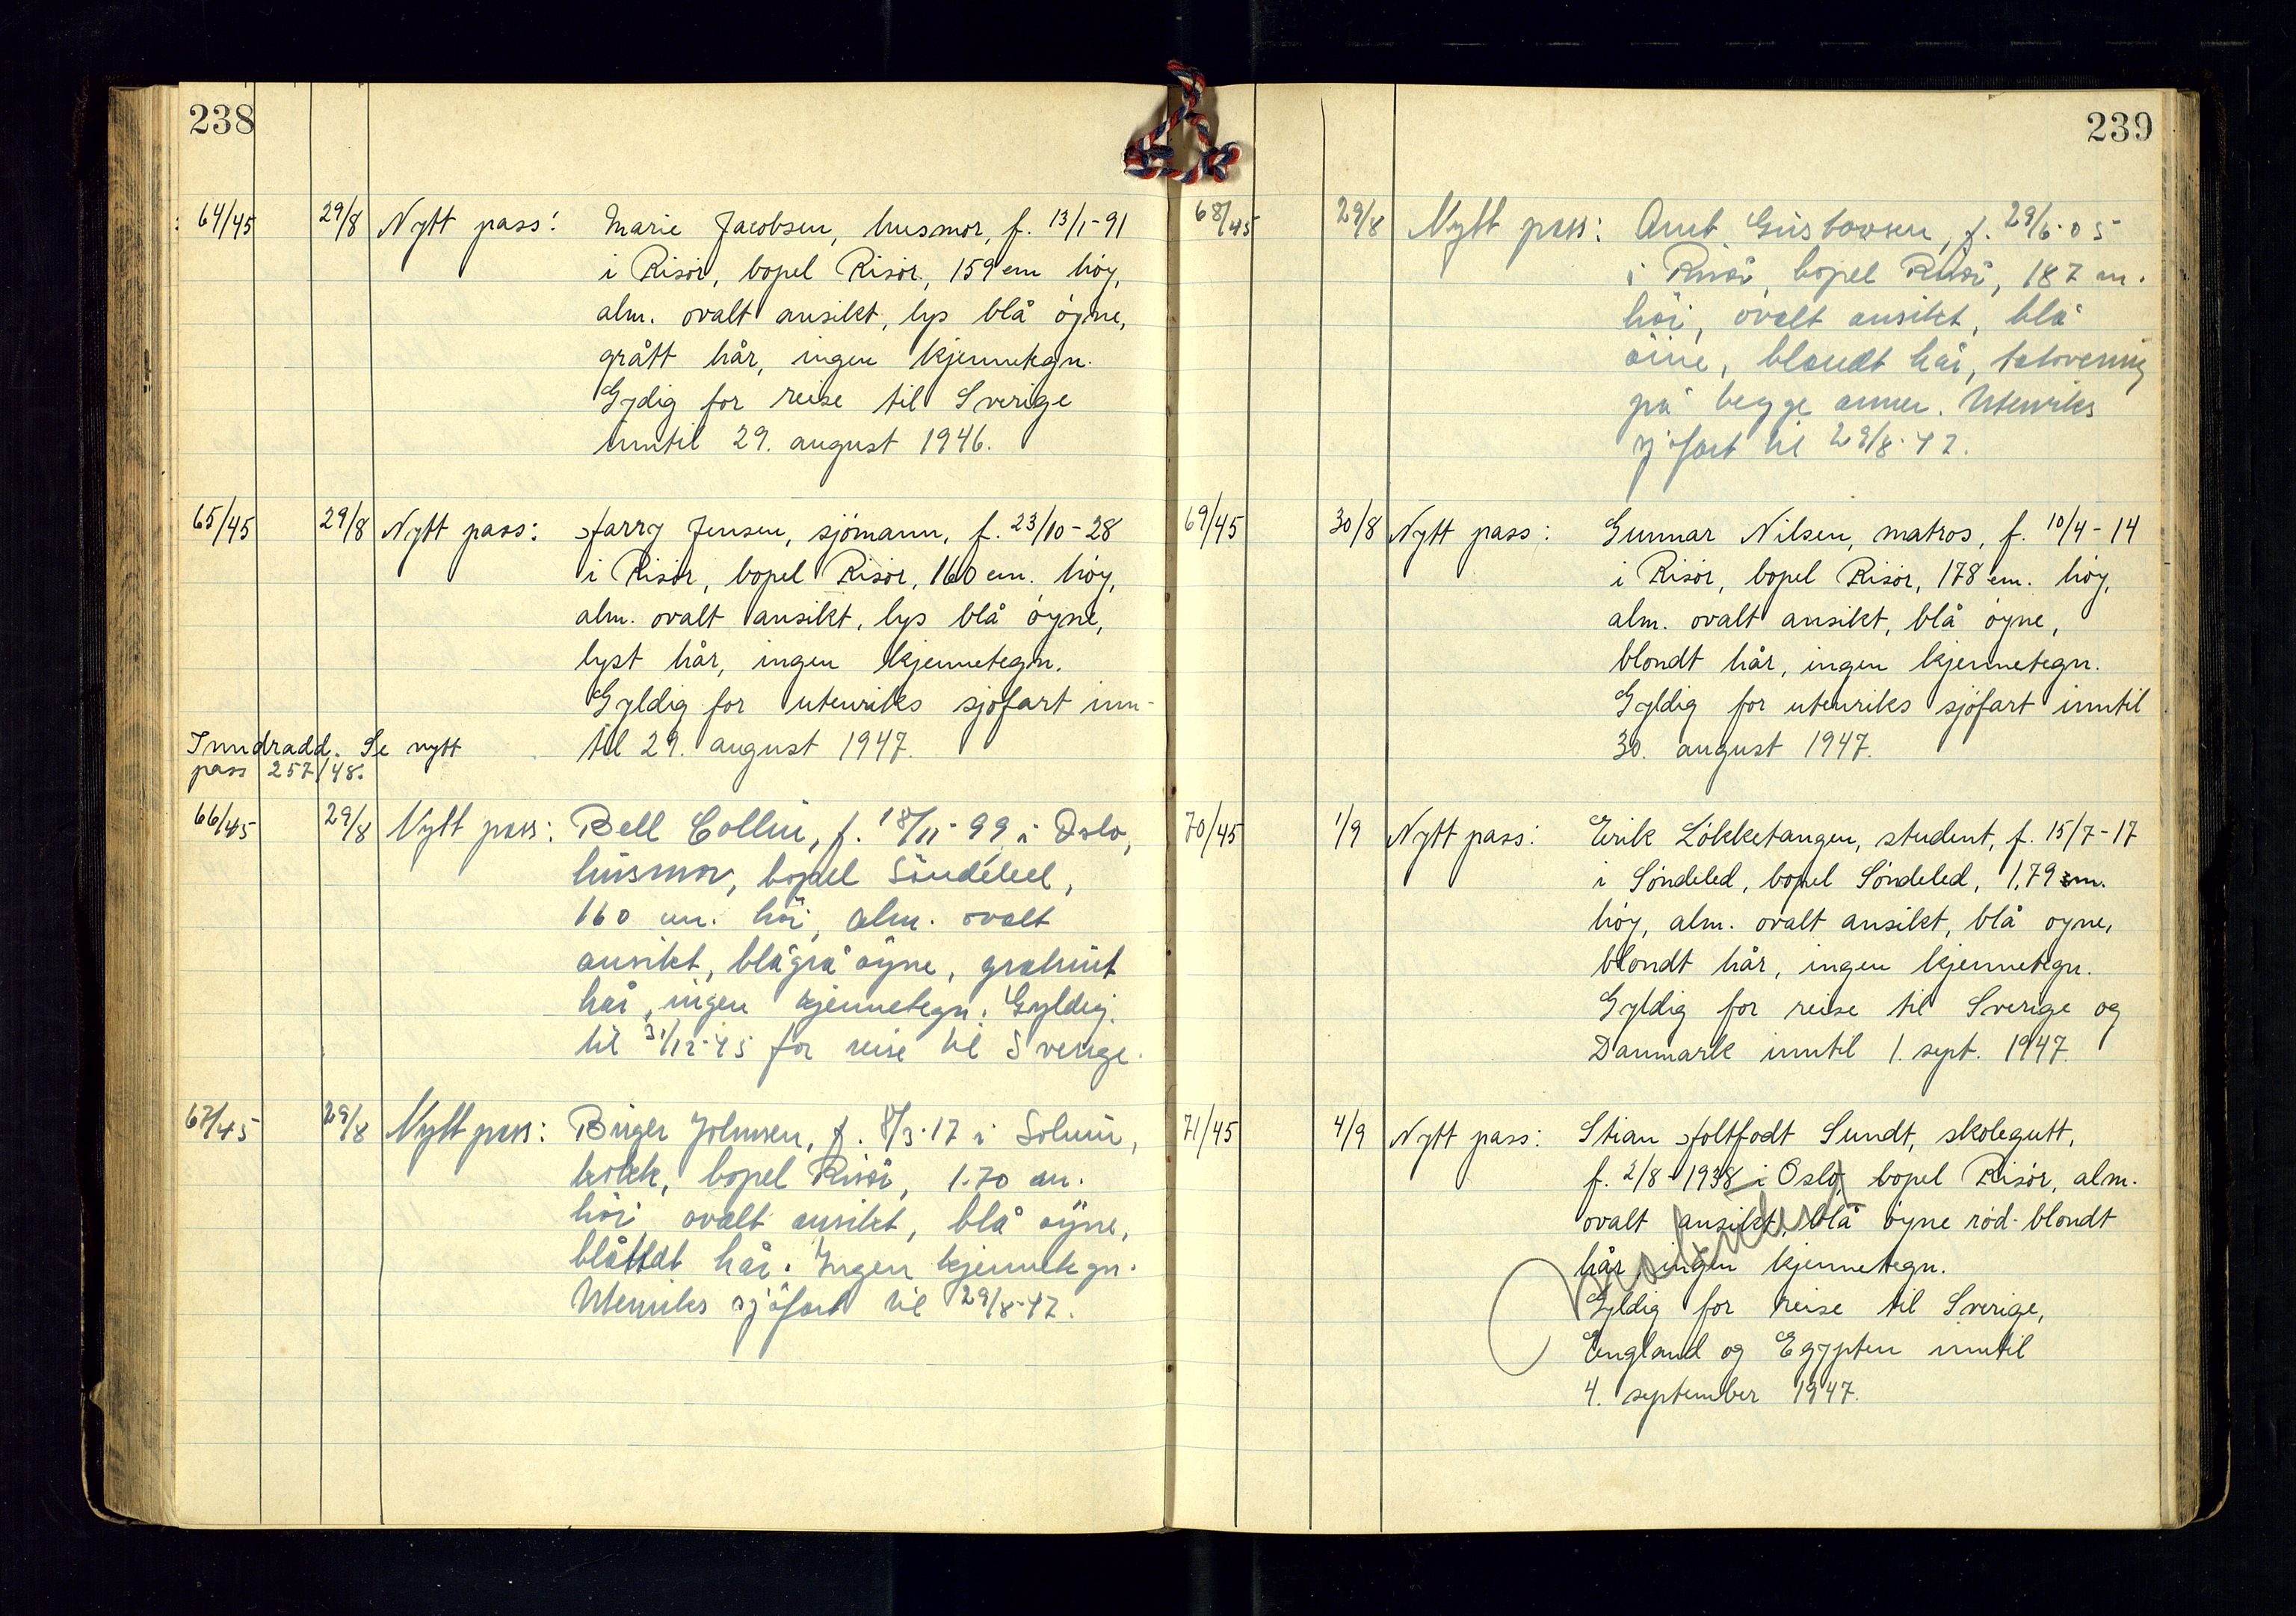 238
64/45 29/8 Nytt pass: Marie Jacobsen, husmor, f. 13/1-91
i Risör, bopel Risör, 159 cm höy,
alm. ovalt ansikt, lys blå öyne,
grått hår, ingen kjennetegn.
Gydig for reise til Sverige
inntil 29. august 1946.
65/45 29/8 Nytt pass: Harry Jensen, sjömann, f. 23/10-28
i Risör, bopel Risör, 160 cm. höy,
alm. ovalt ansikt, lys blå öyne,
lyst hår, ingen kjennetegn.
Gyldig for utenriks sjöfart inn-
til 29. august 1947.
Inndradd. Se nytt
pass 257/48.
66/45 29/8 Nytt pass: Bell Collin, f. 18/11-99 i Oslo,
husmor, bopel Söndeled,
160 cm. höi, alm. ovalt
ansikt, blågrå öyne, gråbrunt
hår, ingen kjennetegn. Gyldig
til 31/12-45 for reise til Sverige.
67/45 29/8 Nytt pass: Birger Johnsen, f. 8/3-17 i Solum,
kokk, bopel Risör, 1.70 cm.
höi ovalt ansikt, blå öyne,
hår. Ingen kjennetegn.
Utenriks sjöfart til 29/8-47.
239
68/45 29/8 Nytt pass: Arnt Gustavsen, f. 29/6-05
i Risör, bopel Risör, 187 cm.
höi, ovalt ansikt, blå
öine, blondt hår, tatovering
på begge armer. Utenriks
sjöfart til 29/8-47.
69/45 30/8 Nytt pass: Gunnar Nilsen, matros, f. 10/4-14
i Risör, bopel Risör, 178 cm. höy,
alm. ovalt ansikt, blå öyne,
blondt hår, ingen kjennetegn.
Gyldig for utenriks sjöfart inntil
30. august 1947.
70/45 1/9 Nytt pass: Eirik Lökketangen, student, f. 15/7-17
i Söndeled, bopel Söndeled, 1,79 m.
höy, alm. ovalt ansikt, blå öyne,
blondt hår, ingen kjennetegn.
Gyldig for reise til Sverige og
Danmark inntil 1. sept. 1947.
71/45 4/9 Nytt pass: Stian Holtfodt Sundt, skolegutt,
f. 2/8-1938 i Oslo, bopel Risör, alm.
ovalt ansikt, blå öyne röd-blondt
hår, ingen kjennetegn.
Gyldig for reise til Sverige,
England og Egypten inntil
4. september 1947.